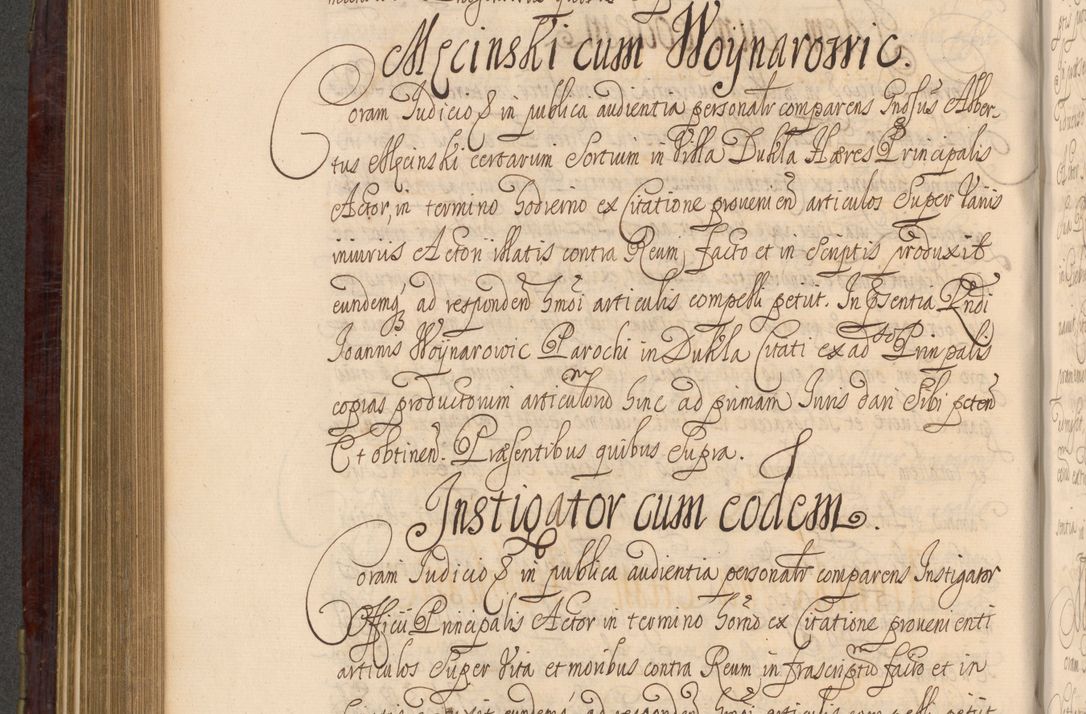 Męcinski cum Woÿnarowic.
Coram Iudicio & in publica audientia personalr comparens Gnosus Alber-
tus Męcinski certarum Sortium in Villa Dukla Hæres Principalis
Actor, in termino hodierno ex Citatione provenien articulos Super Variis
iniuriis Actori illatis contra Reum facto et in Scriptis produxit
eundemq, ad responden hmoi articulis compelli petiit. In Psentia Rndi
Ioannis Woÿnarowic Parochi in Dukla Citati ex adto Prinpalis
copias productorum articulorum hinc ad primam Iuris dari Sibi peten
Et obtinen. Præsentibus quibus Supra.
Instigator cum eodem.
Coram Iudicio & in publica audientia personalr comparens Instigator
Officii Principalis Actor in termino horno ex Citatione provenienti
articulos Super Vita et moribus contra Reum infrascriptum facto et in
Scriptis eundemq, ad responden hmoi articulis petiit